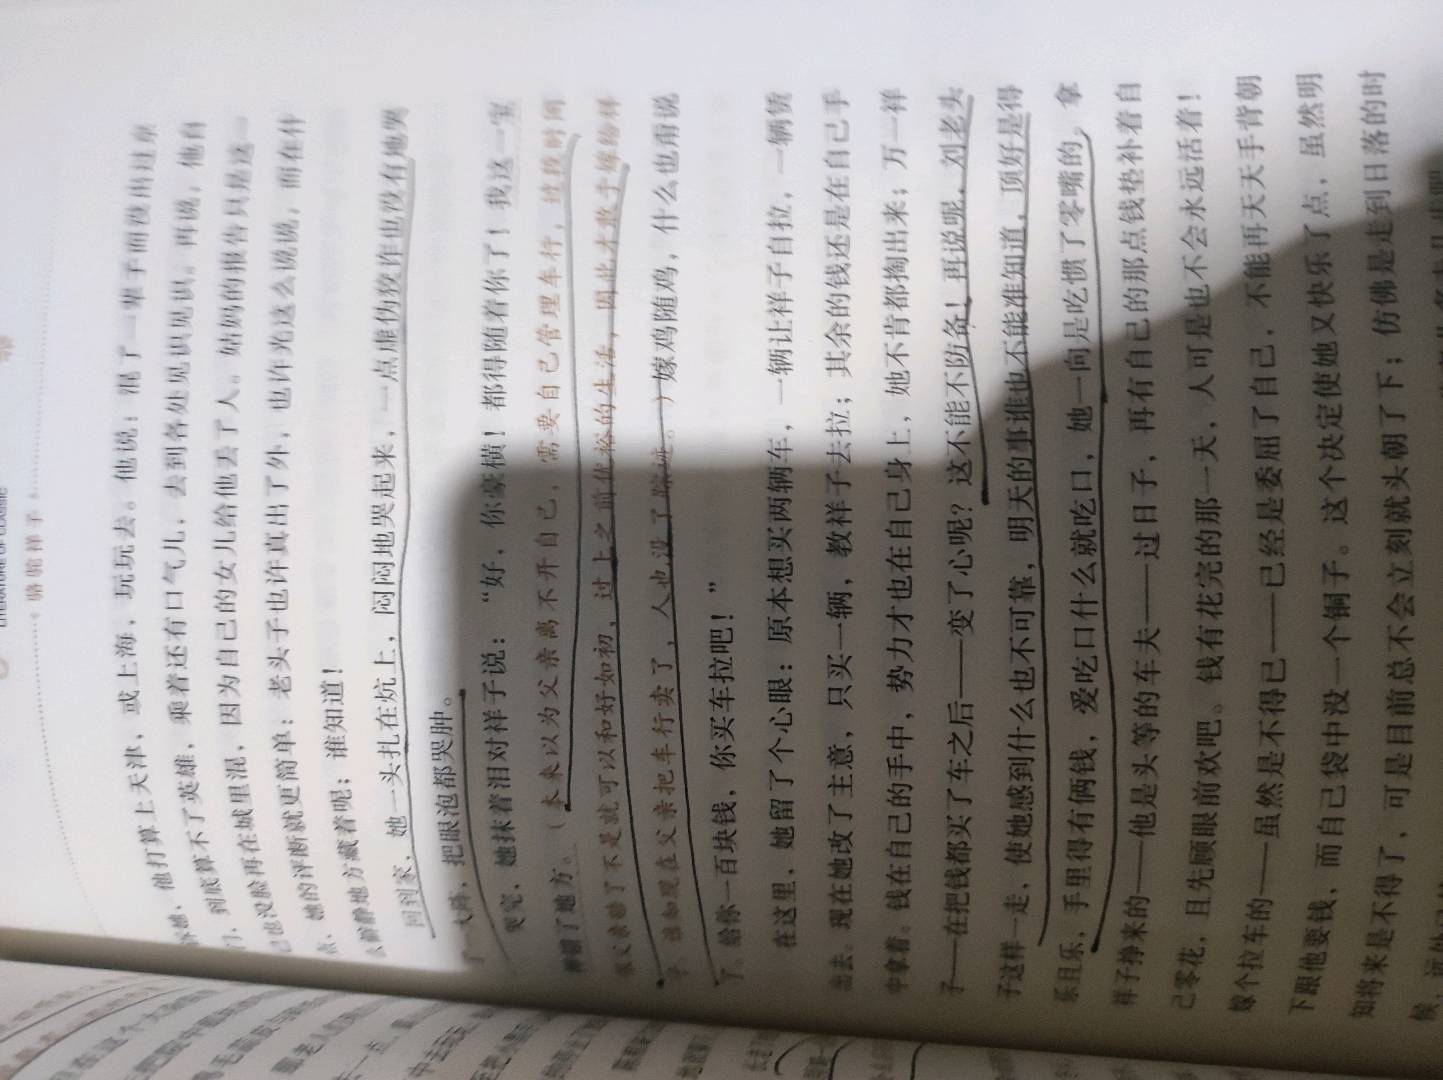 LITERATURE OF CLASSIC
骆驼祥子
诉她，他打算上天津，或上海，玩玩去。他说：混了一辈子而没出过京
门，到底算不了英雄，乘着还有口气儿，去到各处见识见识。再说，他自
己也没脸再在城里混，因为自己的女儿给他丢了人。姑妈的报告只是这一
点，她的评断就更简单：老头子也许真出了外，也许光这么说说，而在什
么僻静地方藏着呢；谁知道！
回到家，她一头扎在炕上，闷闷地哭起来，一点虚伪狡诈也没有地哭
了一大阵，把眼泡都哭肿。
哭完，她抹着泪对祥子说：“好，你豪横！都得随着你了！我这一宝
押错了地方。（本来以为父亲离不开自己，需要自己管理车行，过段时间
跟父亲赔了不是就可以和好如初，过上之前优裕的生活，因此才敢于嫁给祥
子，谁知现在父亲把车行卖了，人也没了踪迹。）嫁鸡随鸡，什么也甭说
了。给你一百块钱，你买车拉吧！”
在这里，她留了个心眼：原本想买两辆车，一辆让祥子自拉，一辆赁
出去。现在她改了主意，只买一辆，教祥子去拉；其余的钱还是在自己手
中拿着。钱在自己的手中，势力才也在自己身上，她不肯都掏出来；万一祥
子——在把钱都买了车之后——变了心呢？这不能不防备！再说呢，刘老头
子这样一走，使她感到什么也不可靠，明天的事谁也不能准知道，顶好是得
乐且乐，手里得有俩钱，爱吃口什么就吃口，她一向是吃惯了零嘴的。拿
祥子挣来的——他是头等的车夫——过日子，再有自己的那点钱垫补着自
己零花，且先顾眼前欢吧。钱有花完的那一天，人可是也不会永远活着！
嫁个拉车的——虽然是不得已——已经是委屈了自己，不能再天天手背朝
下跟他要钱，而自己袋中没一个铜子。这个决定使她又快乐了点，虽然明
知将来是不得了，可是目前总不会立刻就头朝了下；仿佛是走到日落的时
候，远处已经